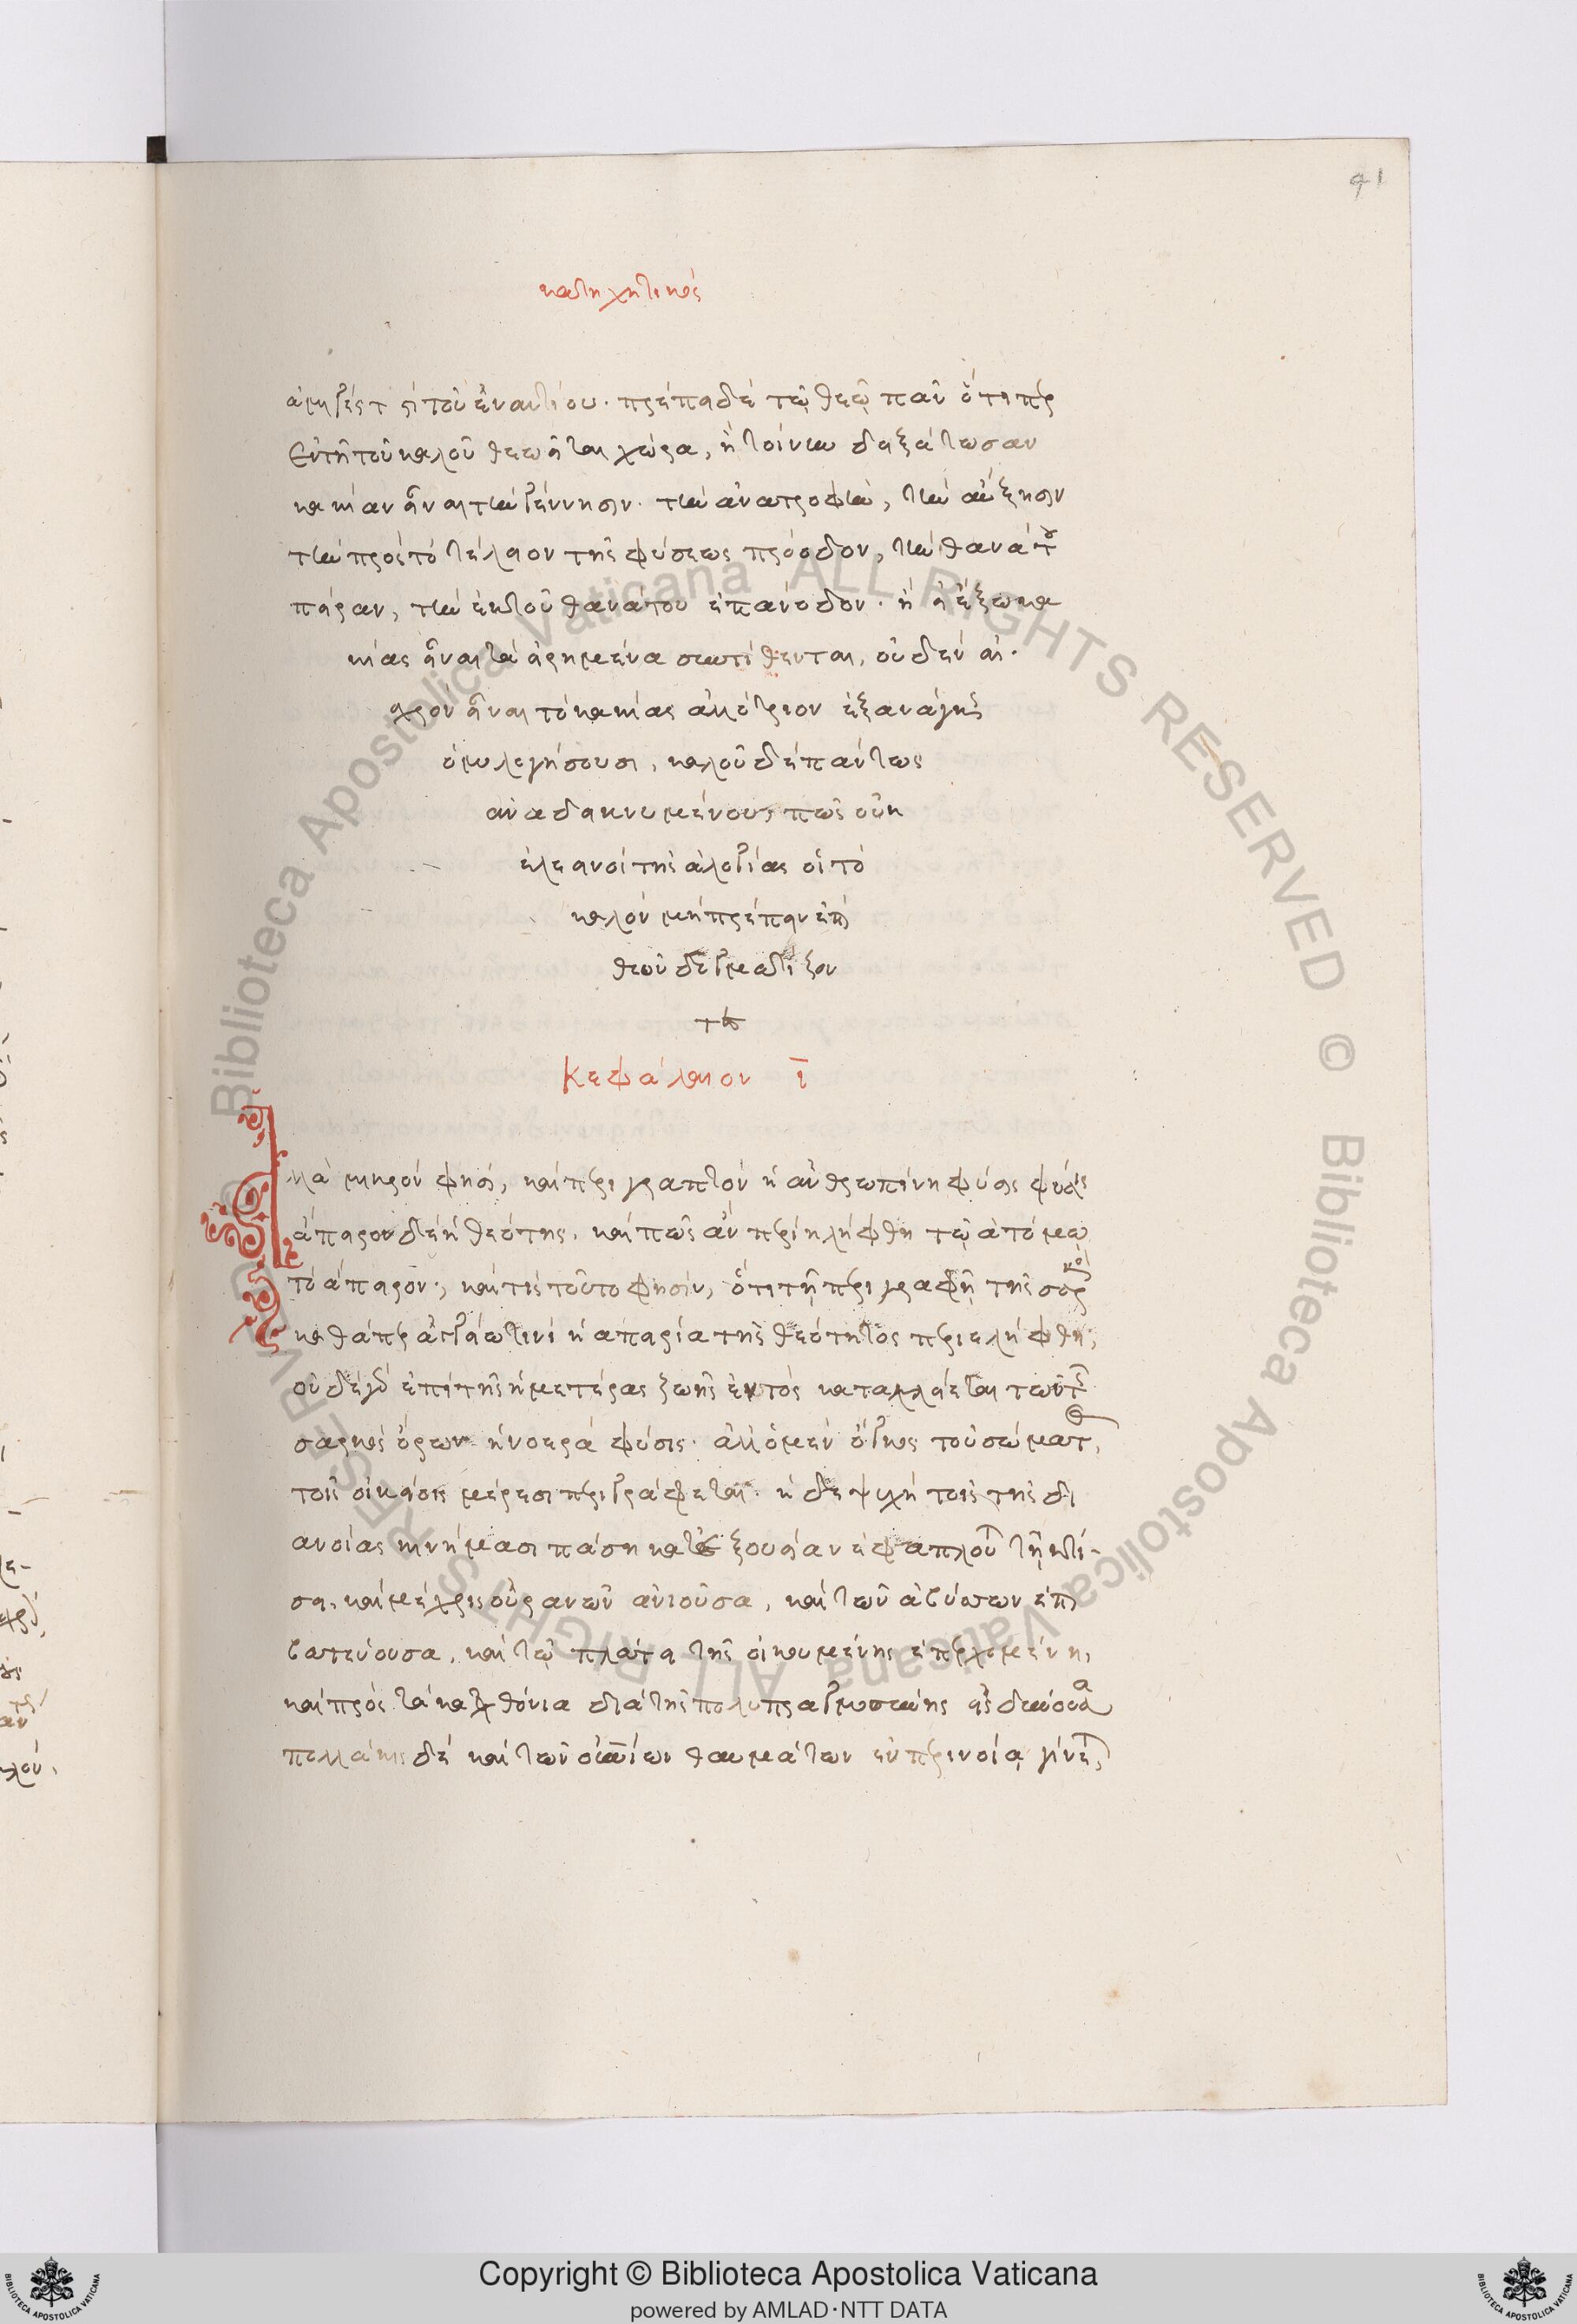 91
κατηχητικός
ἀμιγές τι τοῦ ἐναντίου. πρέπει δὲ τῷ θεῷ πᾶν ὅτιπερ
ἐν τῇ τοῦ καλοῦ θεωρεῖται χώρα, ἢ τοίνυν δειξάτωσαν
κακίαν εἶναι τὴν γέννησιν. τὴν ἀνατροφὴν, τὴν αὔξησιν
τὴν πρὸς τὸ τέλειον τῆς φύσεως πρόοδον, τὴν θανάτου
πεῖραν, τὴν ἐκ τοῦ θανάτου ἐπάνοδον. ἢ εἰ ἔξω κα
κίας εἶναι τὰ εἰρημένα συντίθενται, οὐδὲν αἰ
σχρὸν εἶναι τὸ κακίας ἀλλότριον ἐξ ἀνάγκης
ὁμολογήσουσι, καλοῦ δὲ πάντως
ἀναδεικνυμένου, πῶς οὐκ
ἐλεεινοὶ τῆς ἀλογίας οἱ τὸ
καλὸν μὴ πρέπειν ἐπὶ
θεοῦ δογματίζον
τες
Κεφάλαιον ι
λλὰ μικρὸν φησὶ, καὶ περιγραπτὸν ἡ ἀνθρωπίνη φύσις
ἄπειρον δὲ ἡ θεότης. καὶ πῶς ἂν περιελήφθη τῷ ἀτόμῳ
τὸ ἄπειρον; καὶ τίς τοῦτο φησὶν, ὅτι τῇ περιγραφῇ τῆς σαρκὸς
καθάπερ ἀγγείῳ τινὶ ἡ ἀπειρία τῆς θεότητος περιελήφθη,
οὐδὲ γὰρ ἐπὶ τῆς ἡμετέρας ζωῆς ἐντὸς κατακλείεται τῶν τῆς
σαρκὸς ὅρων ἡ νοερὰ φύσις. ἀλλ' ὁ μὲν ὄγκος τοῦ σώματος,
τοῖς οἰκείοις μέρεσι περιγράφεται. ἡ δὲ ψυχὴ τοῖς τῆς δι
ανοίας κινήμασι πάσῃ κατ' ἐξουσίαν ἐφαπλοῦται τῇ κτί-
σει, καὶ μέχρις οὐρανῶν ἀνιοῦσα, καὶ τῶν ἀβύσσων ἐπι
βατεύουσα, καὶ τῷ πλάτει τῆς οἰκουμένης ἐπερχομένη,
καὶ πρὸς τὰ καταχθόνια διὰ τῆς πολυπραγμοσύνης εἰσδύνουσα
πολλάκις δὲ καὶ τῶν οὐρανίων θαυμάτων ἐν περινοίᾳ γίνεται,
Copyright © Biblioteca Apostolica Vaticana
powered by AMLAD·NTT DATA